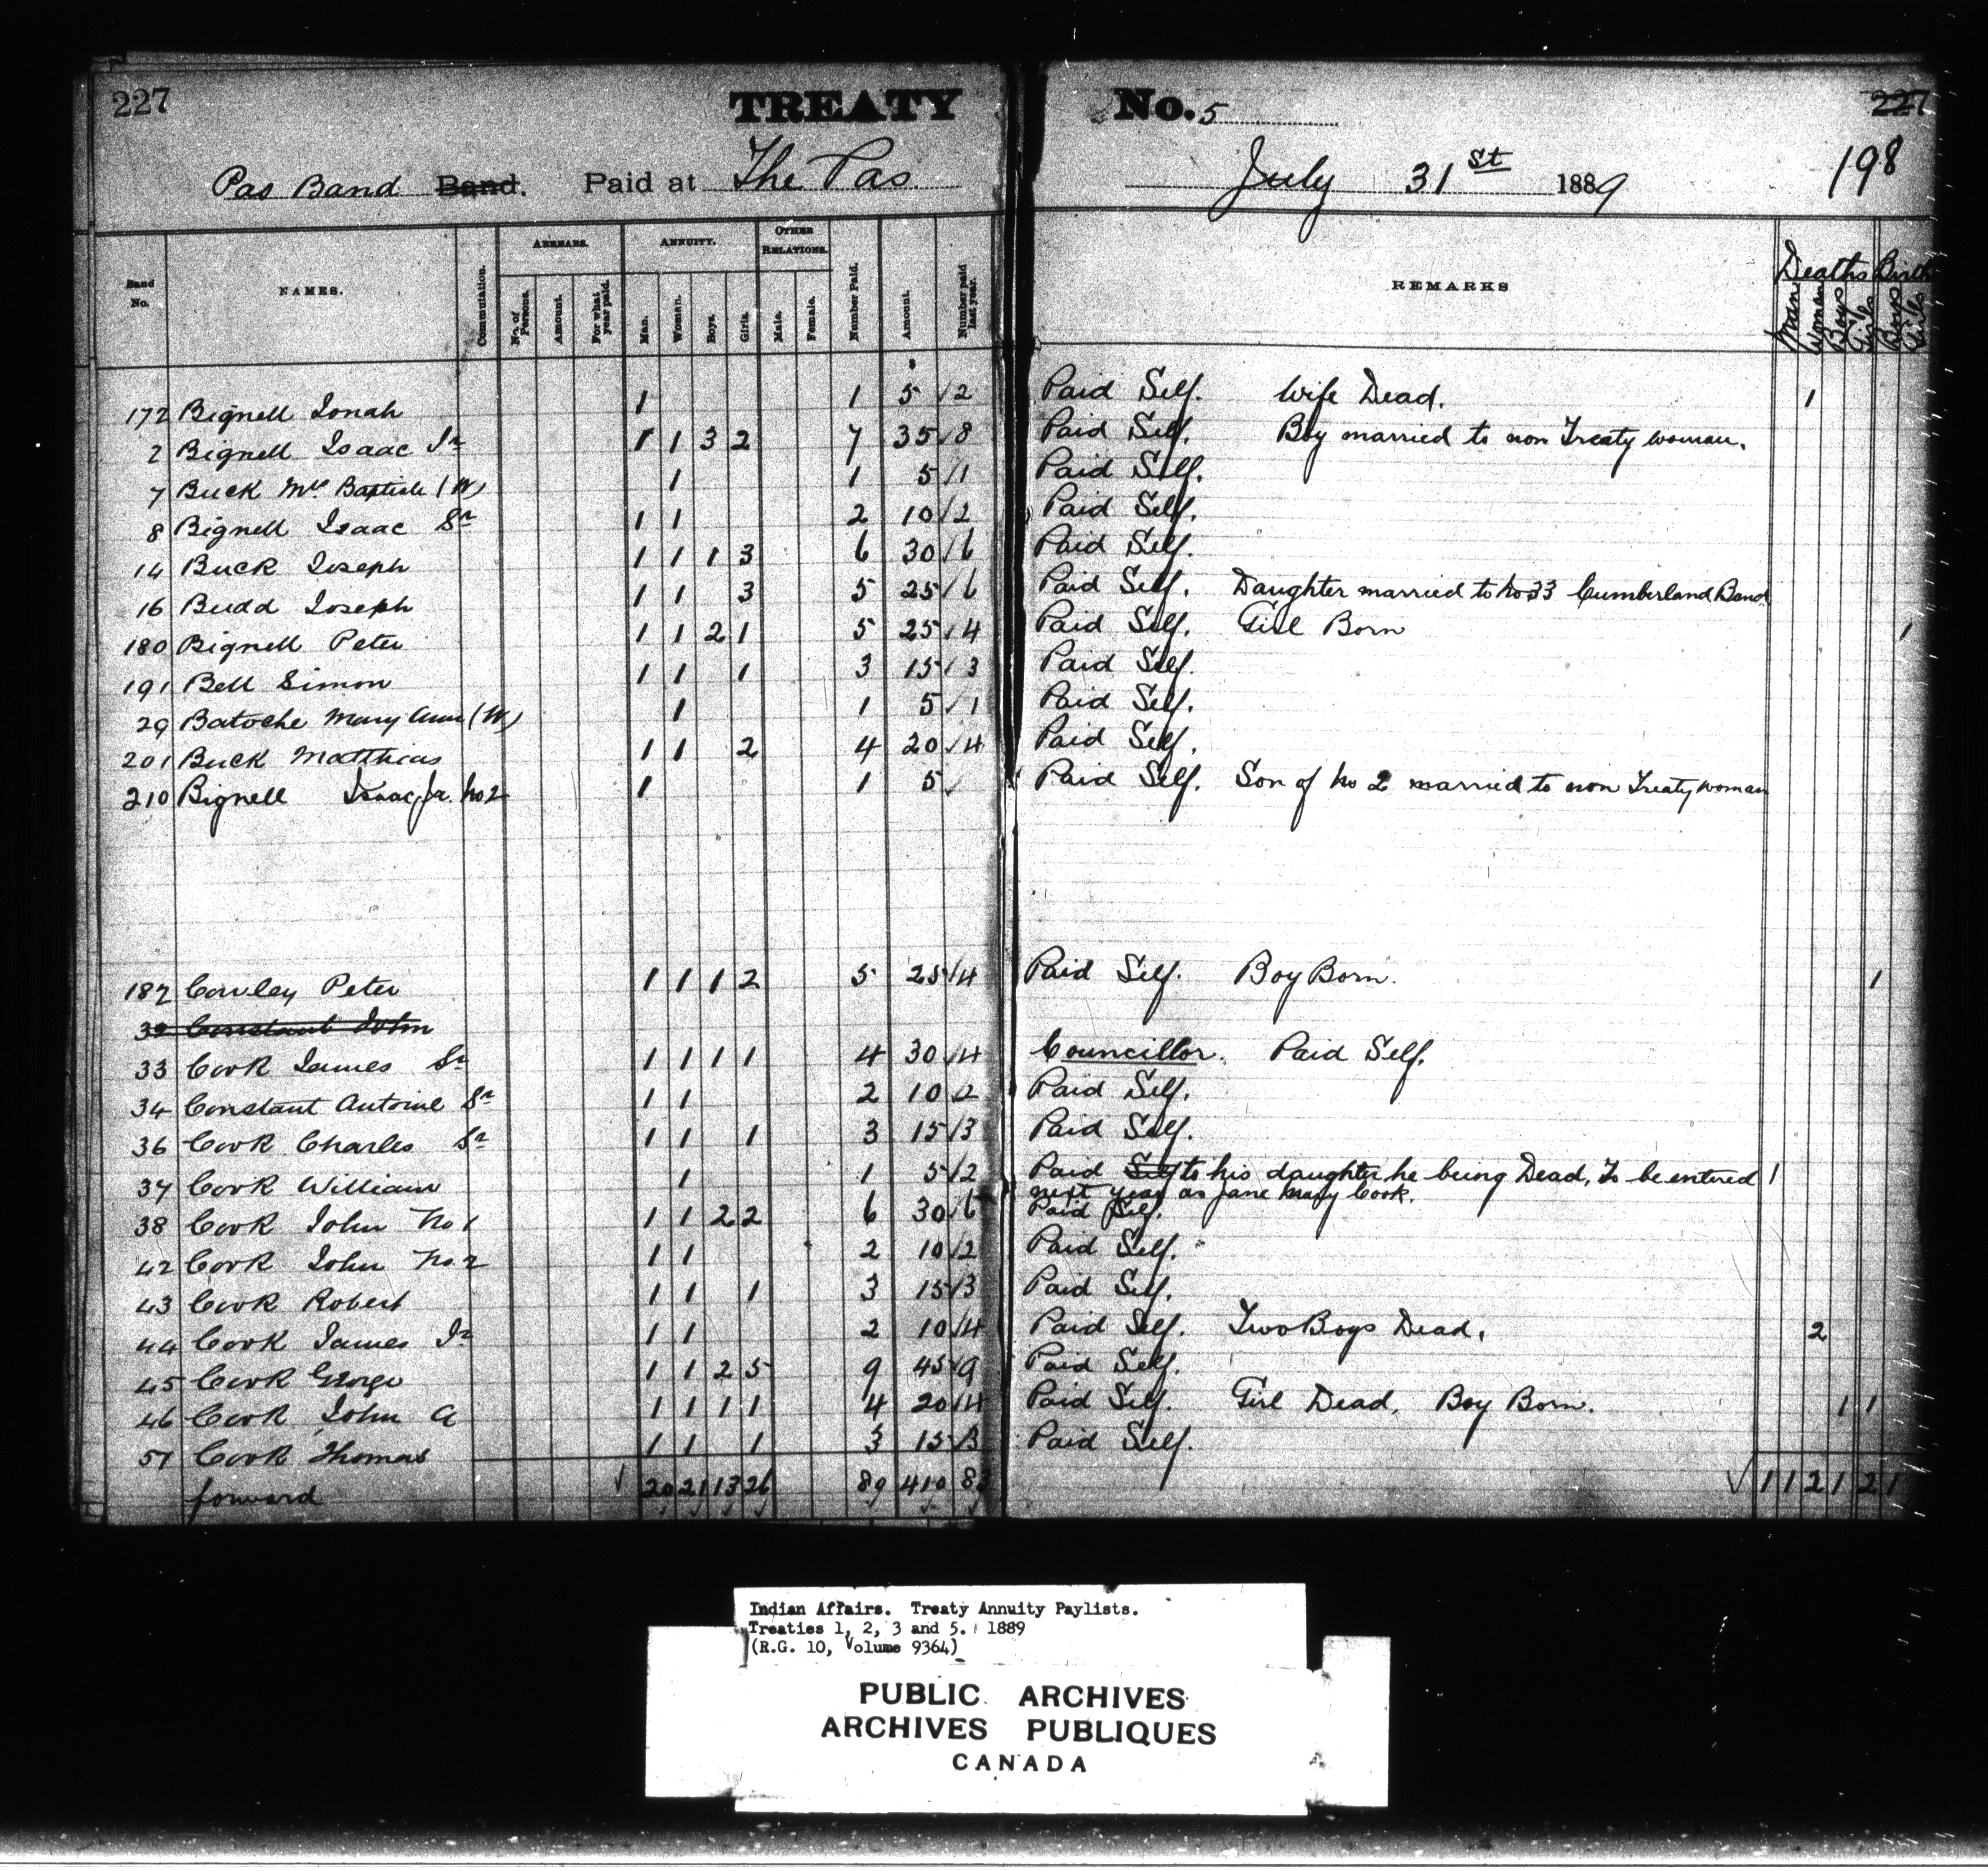 227 TREATY No. 5 227
198
Pas Band Band. Paid at The Pas. July 31st 1889
Band No. NAMES. Commutation. ARREARS. No. of Persons. Amount. For what year paid. ANNUITY. Man. Woman. Boys. Girls. OTHER RELATIONS. Male. Female. Number Paid. Amount. Number paid last year. REMARKS Deaths Man Woman Boys Girls Births Boys Girls
172 Bignell Jonah 1 1 5 √2 Paid Self. Wife Dead. 1
2 Bignell Isaac Jr 1 1 3 2 7 35 √8 Paid Self. Boy married to non Treaty woman.
7 Buck Mrs Baptiste (W) 1 1 5 √1 Paid Self.
8 Bignell Isaac Sr 1 1 2 10 √2 Paid Self.
14 Buck Joseph 1 1 1 3 6 30 √6 Paid Self.
16 Budd Joseph 1 1 3 5 25 √6 Paid Self. Daughter married to No 33 Cumberland Band
180 Bignell Peter 1 1 2 1 5 25 √4 Paid Self. Girl Born 1
191 Bell Simon 1 1 1 3 15 √3 Paid Self.
29 Batoche Mary Ann (W) 1 1 5 √1 Paid Self.
201 Buck Matthias 1 1 2 4 20 √4 Paid Self.
210 Bignell Isaac Jr. No 2 1 1 5 √ Paid Self. Son of No 2 married to non Treaty woman
187 Cowley Peter 1 1 1 2 5 25 √4 Paid Self. Boy Born. 1
Constant John
33 Cook James Sr 1 1 1 1 4 30 √4 Councillor. Paid Self.
34 Constant Antoine Sr 1 1 2 10 √2 Paid Self.
36 Cook Charles Sr 1 1 1 3 15 √3 Paid Self.
37 Cook William 1 1 5 √2 Paid Self to his daughter he being Dead, To be entered 1
next year as Jane Mary Cook.
38 Cook John No 1 1 1 2 2 6 30 √6 Paid Self.
42 Cook John No 2 1 1 2 10 √2 Paid Self.
43 Cook Robert 1 1 1 3 15 √3 Paid Self.
44 Cook James Jr 1 1 2 10 √4 Paid Self. Two Boys Dead. 2
45 Cook George 1 1 2 5 9 45 √9 Paid Self.
46 Cook John A 1 1 1 1 4 20 √4 Paid Self. Girl Dead. Boy Born. 1 1
51 Cook Thomas 1 1 1 3 15 √3 Paid Self.
forward √ 20 21 13 26 89 410 83 √ 1 1 2 1 2 1
Indian Affairs. Treaty Annuity Paylists.
Treaties 1, 2, 3 and 5. 1889
(R.G. 10, Volume 9364)
PUBLIC ARCHIVES
ARCHIVES PUBLIQUES
CANADA